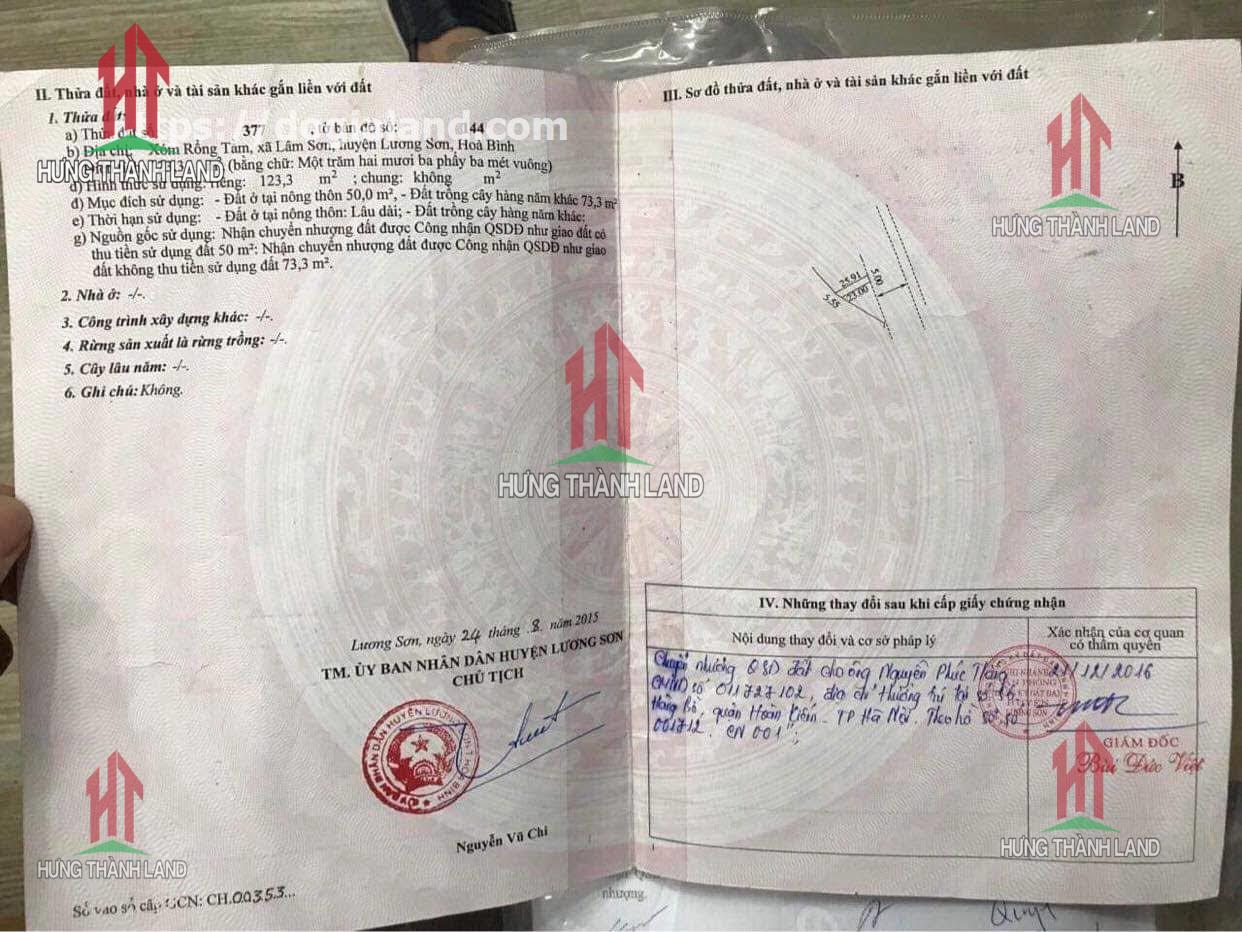 II. Thửa đất, nhà ở và tài sản khác gắn liền với đất
1. Thửa đất:
a) Thửa đất số 377 , tờ bản đồ số: 144
https:// land.com
b) Địa chỉ: Xóm Rồng Tằm, xã Lâm Sơn, huyện Lương Sơn, Hoà Bình
(bằng chữ: Một trăm hai mươi ba phẩy ba mét vuông)
d) Hình thức sử dụng: riêng: 123,3 m² ; chung: không m²
đ) Mục đích sử dụng: - Đất ở tại nông thôn 50,0 m², - Đất trồng cây hàng năm khác 73,3 m²
e) Thời hạn sử dụng: - Đất ở tại nông thôn: Lâu dài; - Đất trồng cây hàng năm khác:
g) Nguồn gốc sử dụng: Nhận chuyển nhượng đất được Công nhận QSDĐ như giao đất có
thu tiền sử dụng đất 50 m²: Nhận chuyển nhượng đất được Công nhận QSDĐ như giao
đất không thu tiền sử dụng đất 73,3 m².
2. Nhà ở: -/-.
3. Công trình xây dựng khác: -/-.
4. Rừng sản xuất là rừng trồng: -/-.
5. Cây lâu năm: -/-.
6. Ghi chú: Không.
Lương Sơn, ngày 24 tháng 8 năm 2015
TM. ỦY BAN NHÂN DÂN HUYỆN LƯƠNG SƠN
CHỦ TỊCH
Nguyễn Vũ Chi
Số vào sổ cấp GCN: CH.00353...
III. Sơ đồ thửa đất, nhà ở và tài sản khác gắn liền với đất
B
25.91
5.00
23.00
5.55
IV. Những thay đổi sau khi cấp giấy chứng nhận
Nội dung thay đổi và cơ sở pháp lý
Xác nhận của cơ quan
có thẩm quyền
Chuyển nhượng QSD đất cho ông Nguyễn Phúc
CMND số 011727102, địa chỉ thường trú tại số 16
Hàng Bồ, quận Hoàn Kiếm - TP Hà Nội. Theo hồ sơ số
001712. CN 001;
21/12/2016
GIÁM ĐỐC
Bùi Đức Việt
nhượng.
HT
HƯNG THÀNH LAND
HT
HƯNG THÀNH LAND
HT
HƯNG THÀNH LAND
HT
HƯNG THÀNH LAND
HT
HƯNG THÀNH LAND